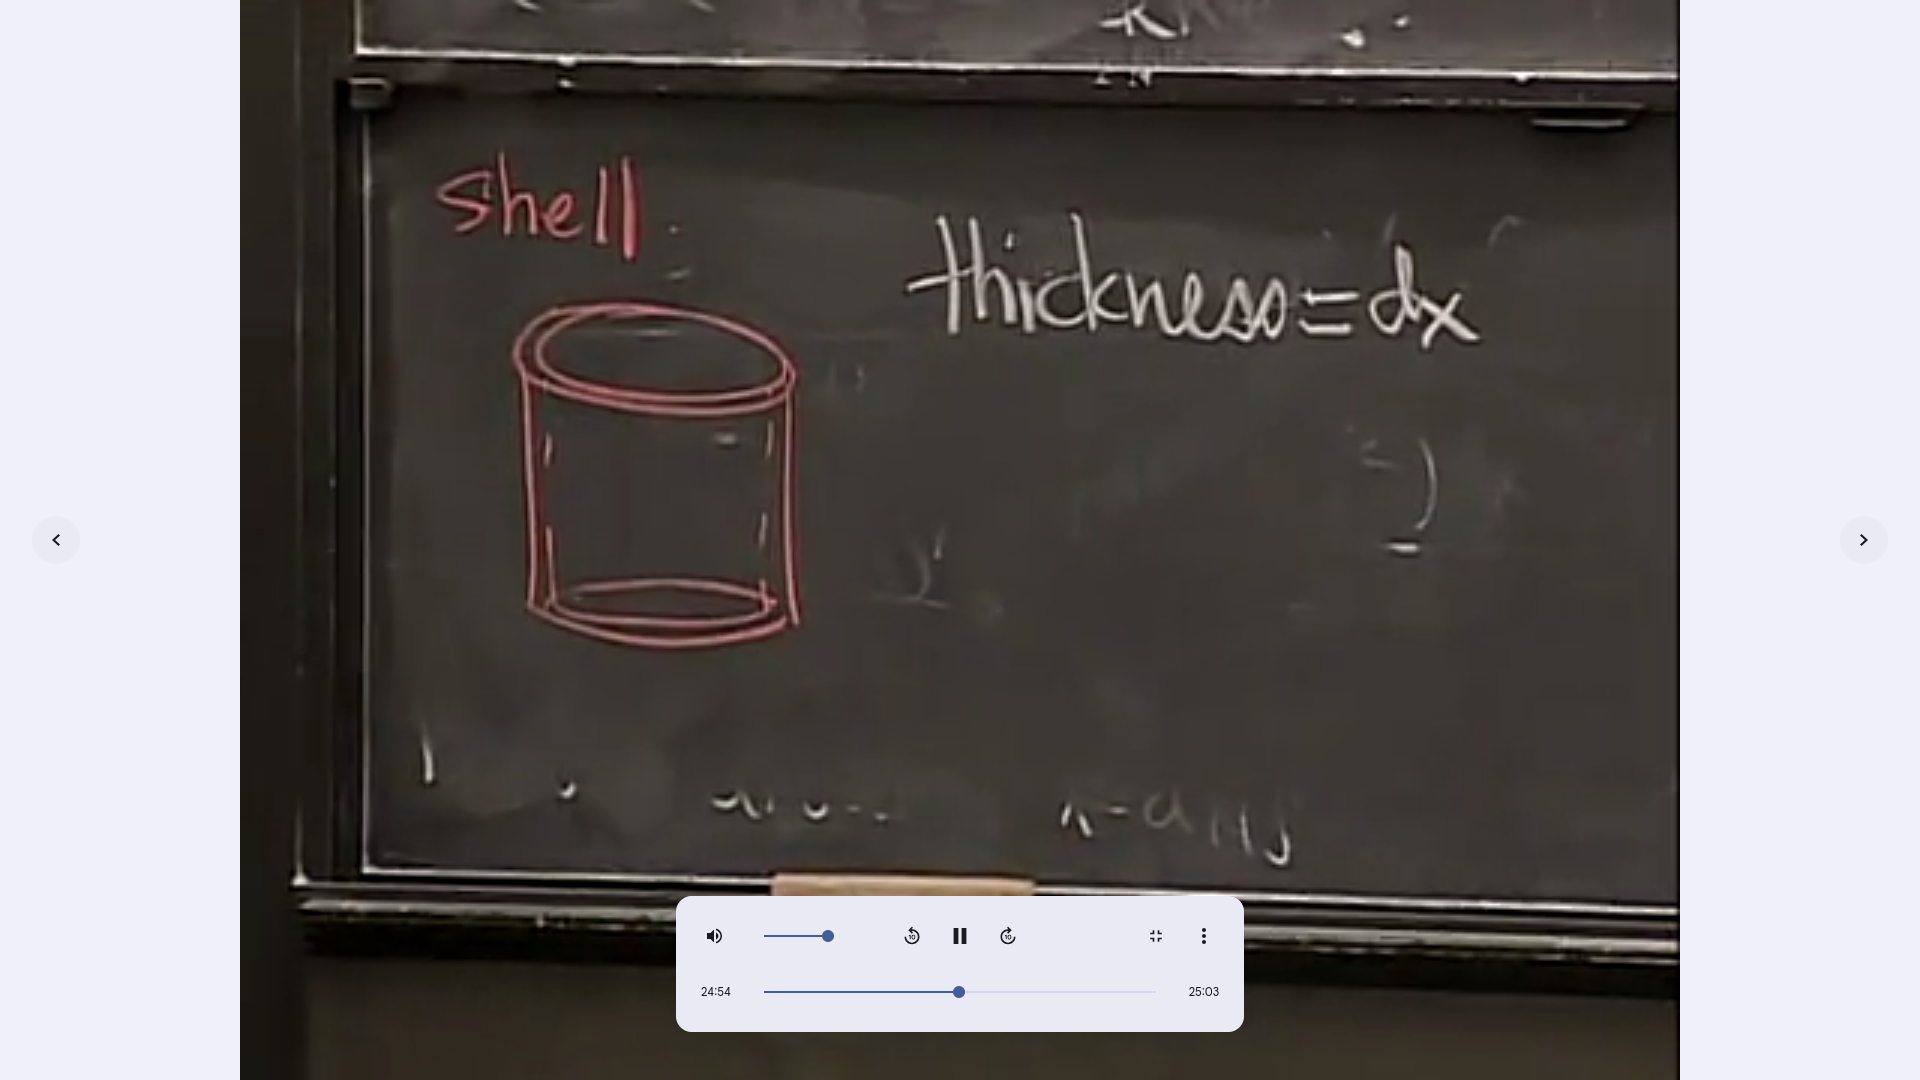 shell
thickness=dx
24:54
25:03